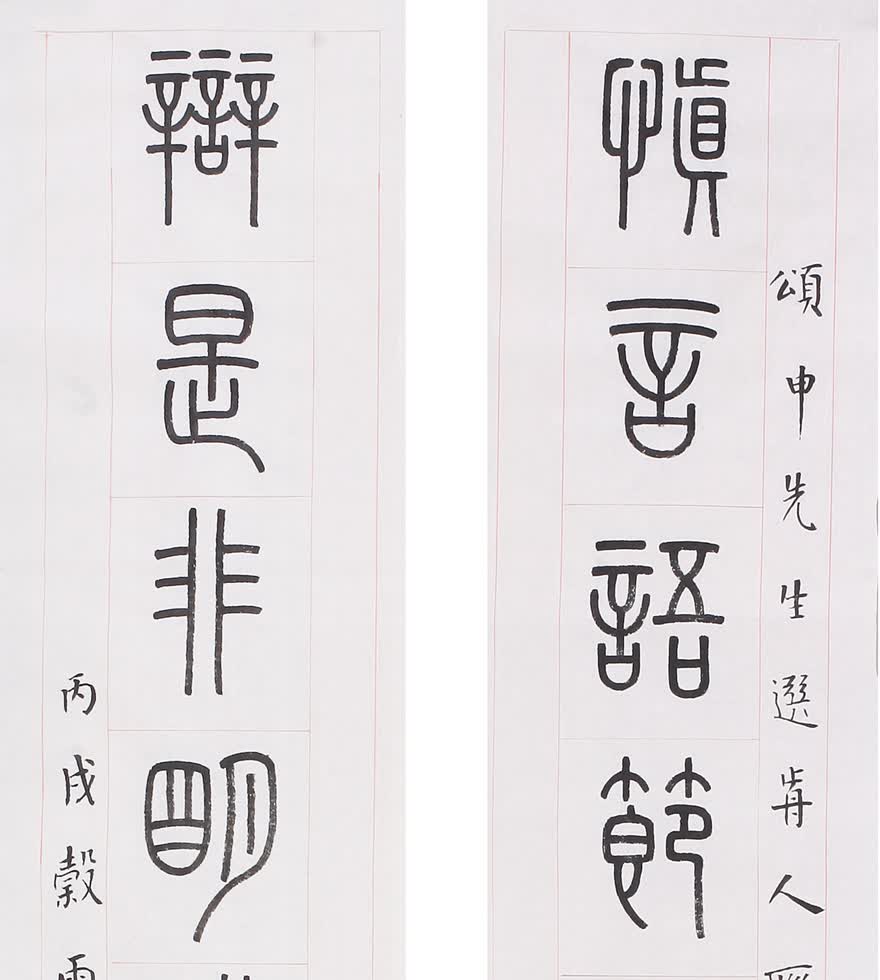 頌申先生選歬人
慎言語節
辯是非明
丙戌穀雨